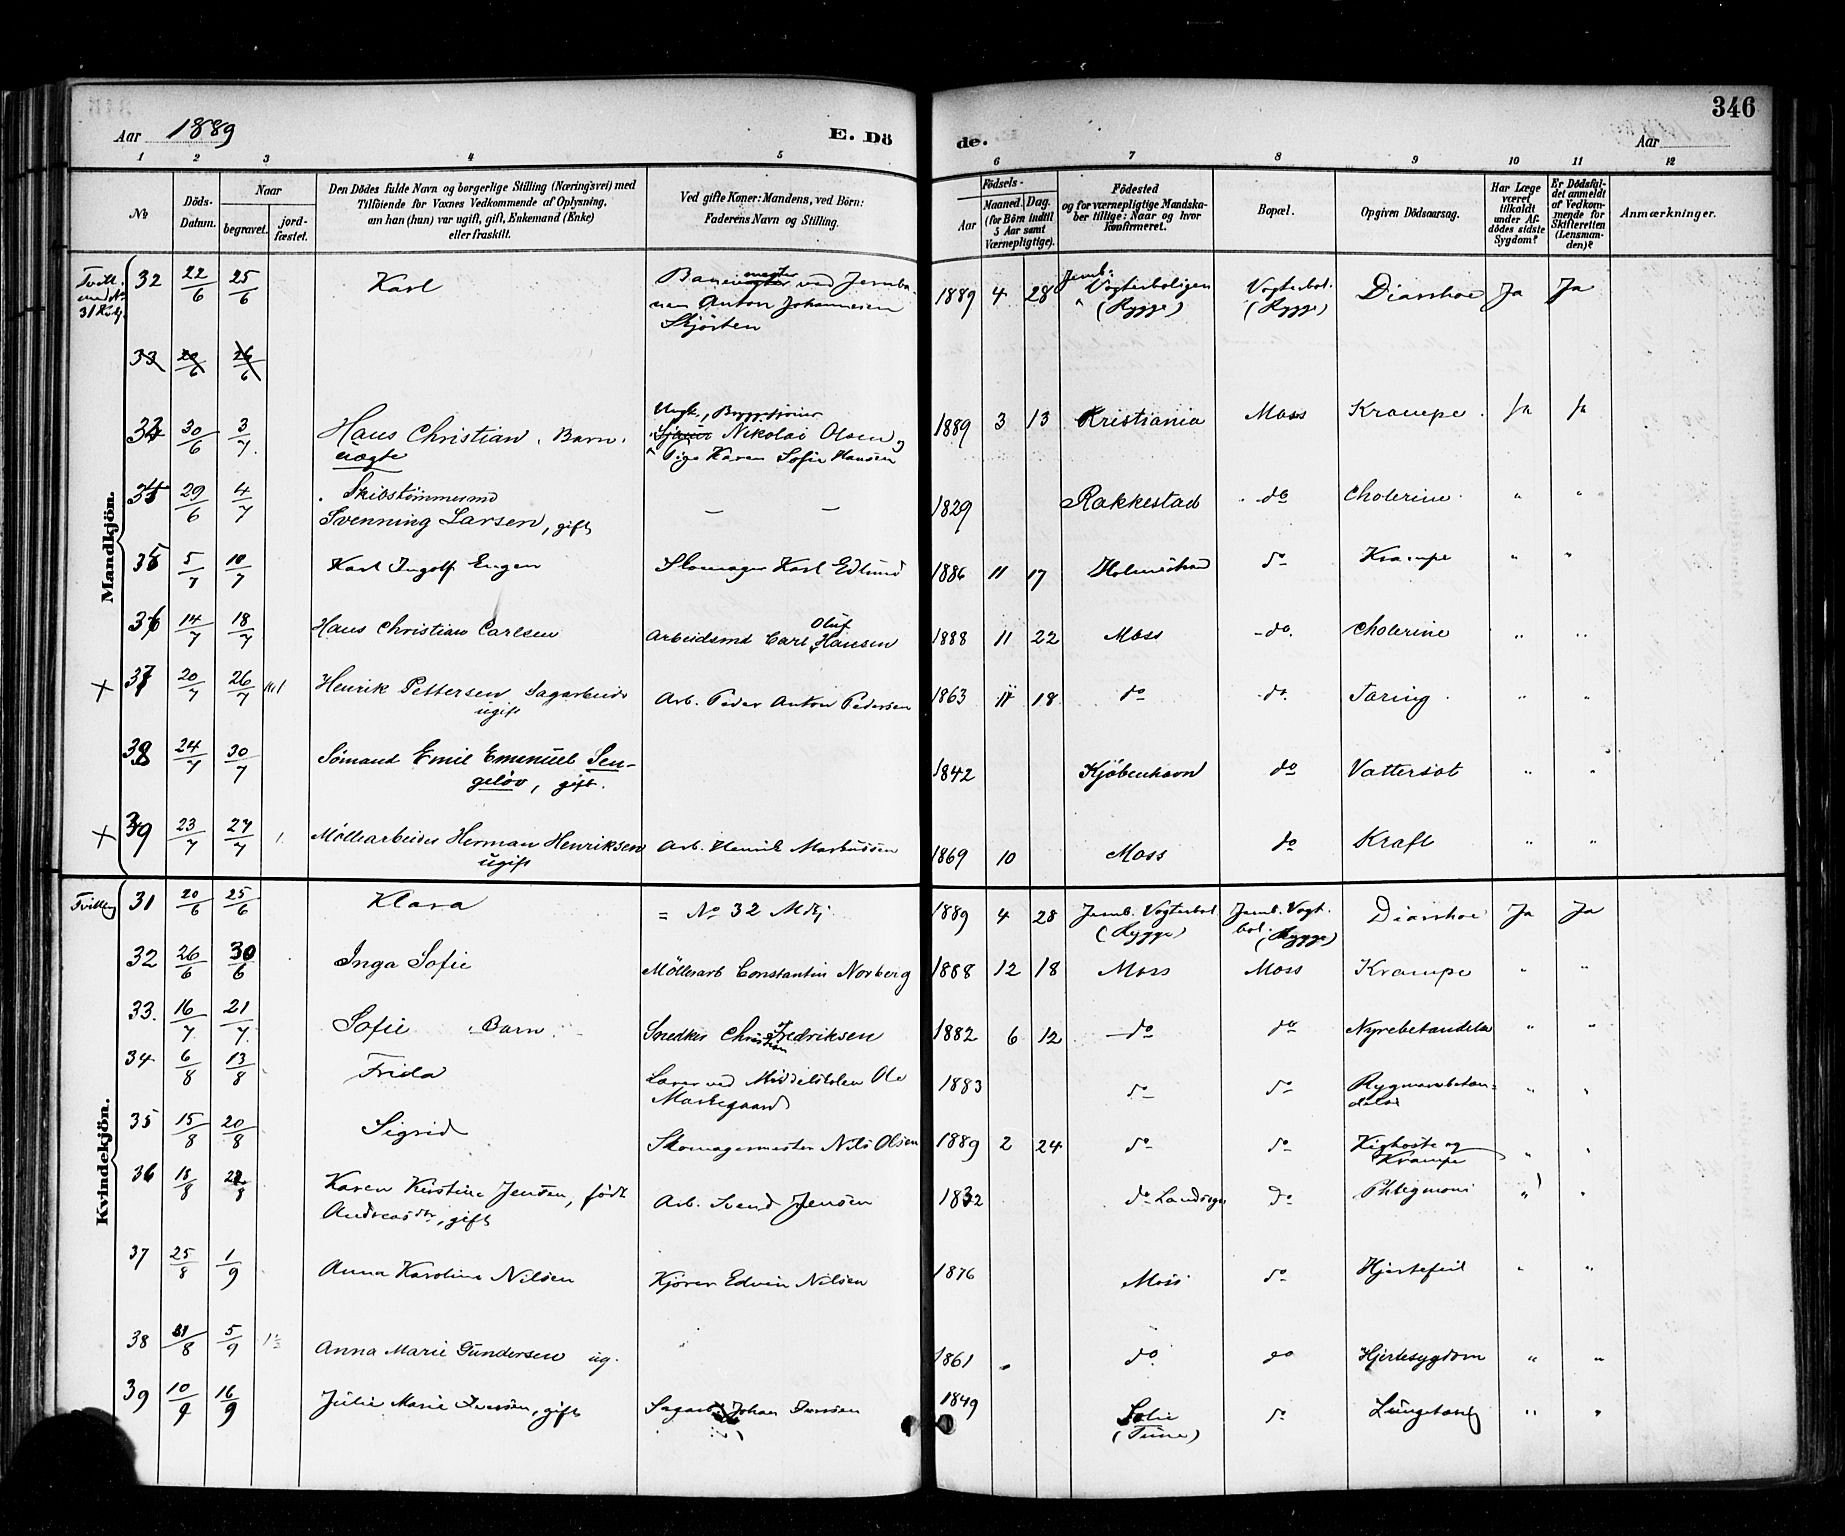 346
Aar 1889 E. Dö de. Aar
1 2 3 4 5 6 7 8 9 10 11 12
№ Döds-Datum. Naar begravet. jordfæstet. Den Dödes fulde Navn og borgerlige Stilling (Næringsvei) med Tilföiende for Voxnes Vedkommende af Oplysning, om han (hun) var ugift, gift, Enkemand (Enke) eller fraskilt. Ved gifte Koner: Mandens, ved Börn: Faderens Navn og Stilling. Födsels- Aar Maaned. Dag. (for Börn indtil 5 Aar samt Værnepligtige). Födested og for værnepligtige Mandskaber tillige: Naar og hvor konfirmeret. Bopæl. Opgiven Dödsaarsag. Har Læge været tilkaldt under Afdödes sidste Sygdom? Er Dödsfaldet anmeldt af Vedkommende for Skifteretten (Lensmanden)? Anmærkninger.
Mandkjön.
Tvill. med № 31 Kvkj. 32 22/6 25/6 Karl Banevogter ved Jernbanen Anton Johannesen Skjörten 1889 4 28 Jernb. Vogterboligen (Rygge) Vogterbol. (Rygge) Diarrhoe Ja Ja
33 20/6 26/6
33 30/6 3/7 Hans Christian, Barn, uægte Ungk., Byggesjouer Nikolai Olsen og Pige Karen Sofie Hansen 1889 3 13 Kristiania Moss Krampe. Ja Ja
34 29/6 4/7 Skibstømmermd Svenning Larsen, gift — — 1829 Rakkestad do Cholerine. " "
35 5/7 10/7 Karl Ingolf Eugen Skomager Karl Edlund 1886 11 17 Holmestrand do Krampe " "
36 14/7 18/7 Hans Christian Carlsen Arbeidsmd Carl Oluf Hansen 1888 11 22 Moss do. Cholerine " "
+ 37 20/7 26/7 Henrik Pettersen Sagarbeider ugift Arb. Peder Anton Pedersen 1863 11 18 do do. Tæring. " "
38 24/7 30/7 Sömand Emil Emanuel Sengeløv, gift. 1842 Kjöbenhavn do Vattersot " "
+ 39 23/7 27/7 1. Møllearbeider Herman Henriksen ugift Arb. Henrik Markussen 1869 10 Moss do Kræft " "
Kvindekjön.
Tvilling 31 20/6 25/6 Klara = No 32 Mkj. 1889 4 28 Jernb. Vogterbol. (Rygge) Jernb. Vogt. bol. (Rygge) Diarrhoe Ja Ja
32 26/6 30/6 Inga Sofie Møllearb Constantin Norberg 1888 12 18 Moss Moss Krampe " "
33. 16/7 21/7 Sofie Barn. Snedker Christian Fredriksen 1882 6 12 do do Nyrebetændelse " "
34 6/8 13/8 Frida Lærer ved Middelskolen Ole Markegaard 1883 do do Rygmarvsbetændelse " "
35 15/8 20/8 Sigrid Skomagermester Nils Olsen 1889 2 24 do do Kighoste og Krampe " "
36 18/8 Karen Kirstine Jensen, født Andreasdtr, gift Arb. Svend Jensen 1832 do Landsogn do Phlegmoni " "
37 25/8 1/9 Anna Karoline Nilsen Kjører Edvin Nilsen 1876 Moss do Hjertefeil " "
38 31/8 5/9 Anna Marie Gundersen ug. 1861 do. do Hjertesygdom " "
39 10/9 16/9 Julie Marie Iversen, gift Sagarb. Johan Iversen 1849 Solie (Tune) do Lungetæring " "